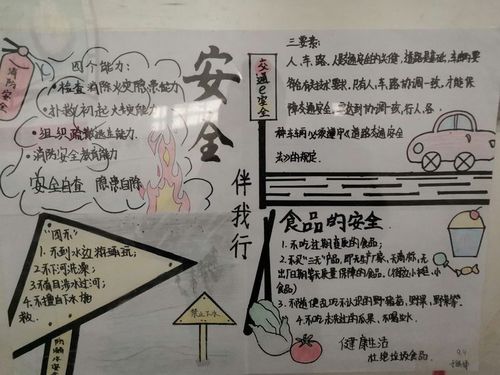 消防安全
四个能力:
·检查消除火灾隐患能力
·扑救初起火灾能力
·组织疏散逃生能力
·消防安全教育能力
安全自查 隐患自除
安全
伴我行
交通e安全
三要素:
人、车、路,人是交通安全的关键,道路是基础,车辆要
符合有关技术要求,只有人、车、路协调一致,才能保
障交通安全。要达到协调一致,行人、各
种车辆必须遵守《道路交通安全
法》的规定。
"四不"
1.不到水边游玩;
2.不下河洗澡;
3.不盲目涉水过河;
4.不擅自下水施
救。
防溺水安全
禁止下水
食品的安全
1.不吃过期变质的食品;
2.不买"三无"产品,即无生产厂家、无商标、无
出厂日期等无质量保障的食品。(街边小摊,小
食品)
3.不随便乱吃不认识的野蘑菇,野果,野菜等
4.不吃未洗过的瓜果,不喝生水.
健康生活
杜绝垃圾食品
9.4